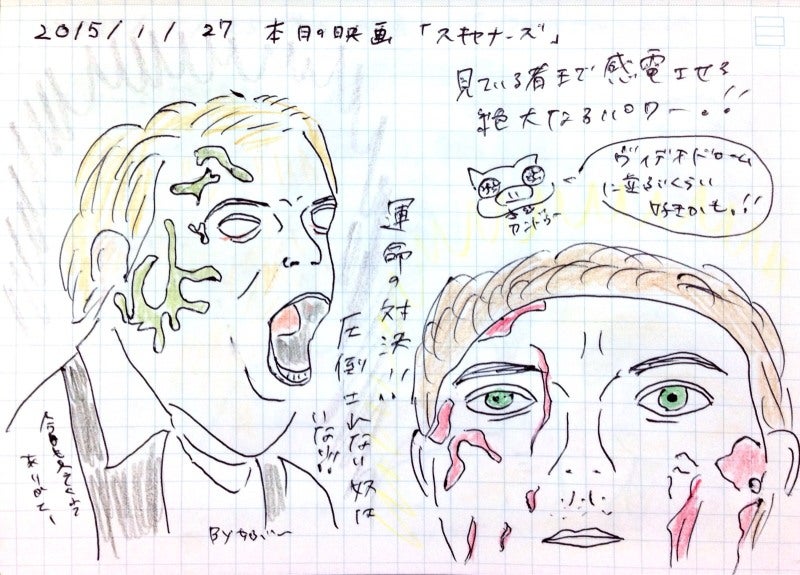 2015/11/27 本日の映画「スキャナーズ」
見ている者まで感電させる
絶大なるパワー!!
ヴィデオドローム
に並ぶくらい
好きかも!!
運命の対決!!
圧倒されない奴は
いない!!
今日も見てくれて
ありがとー
BY